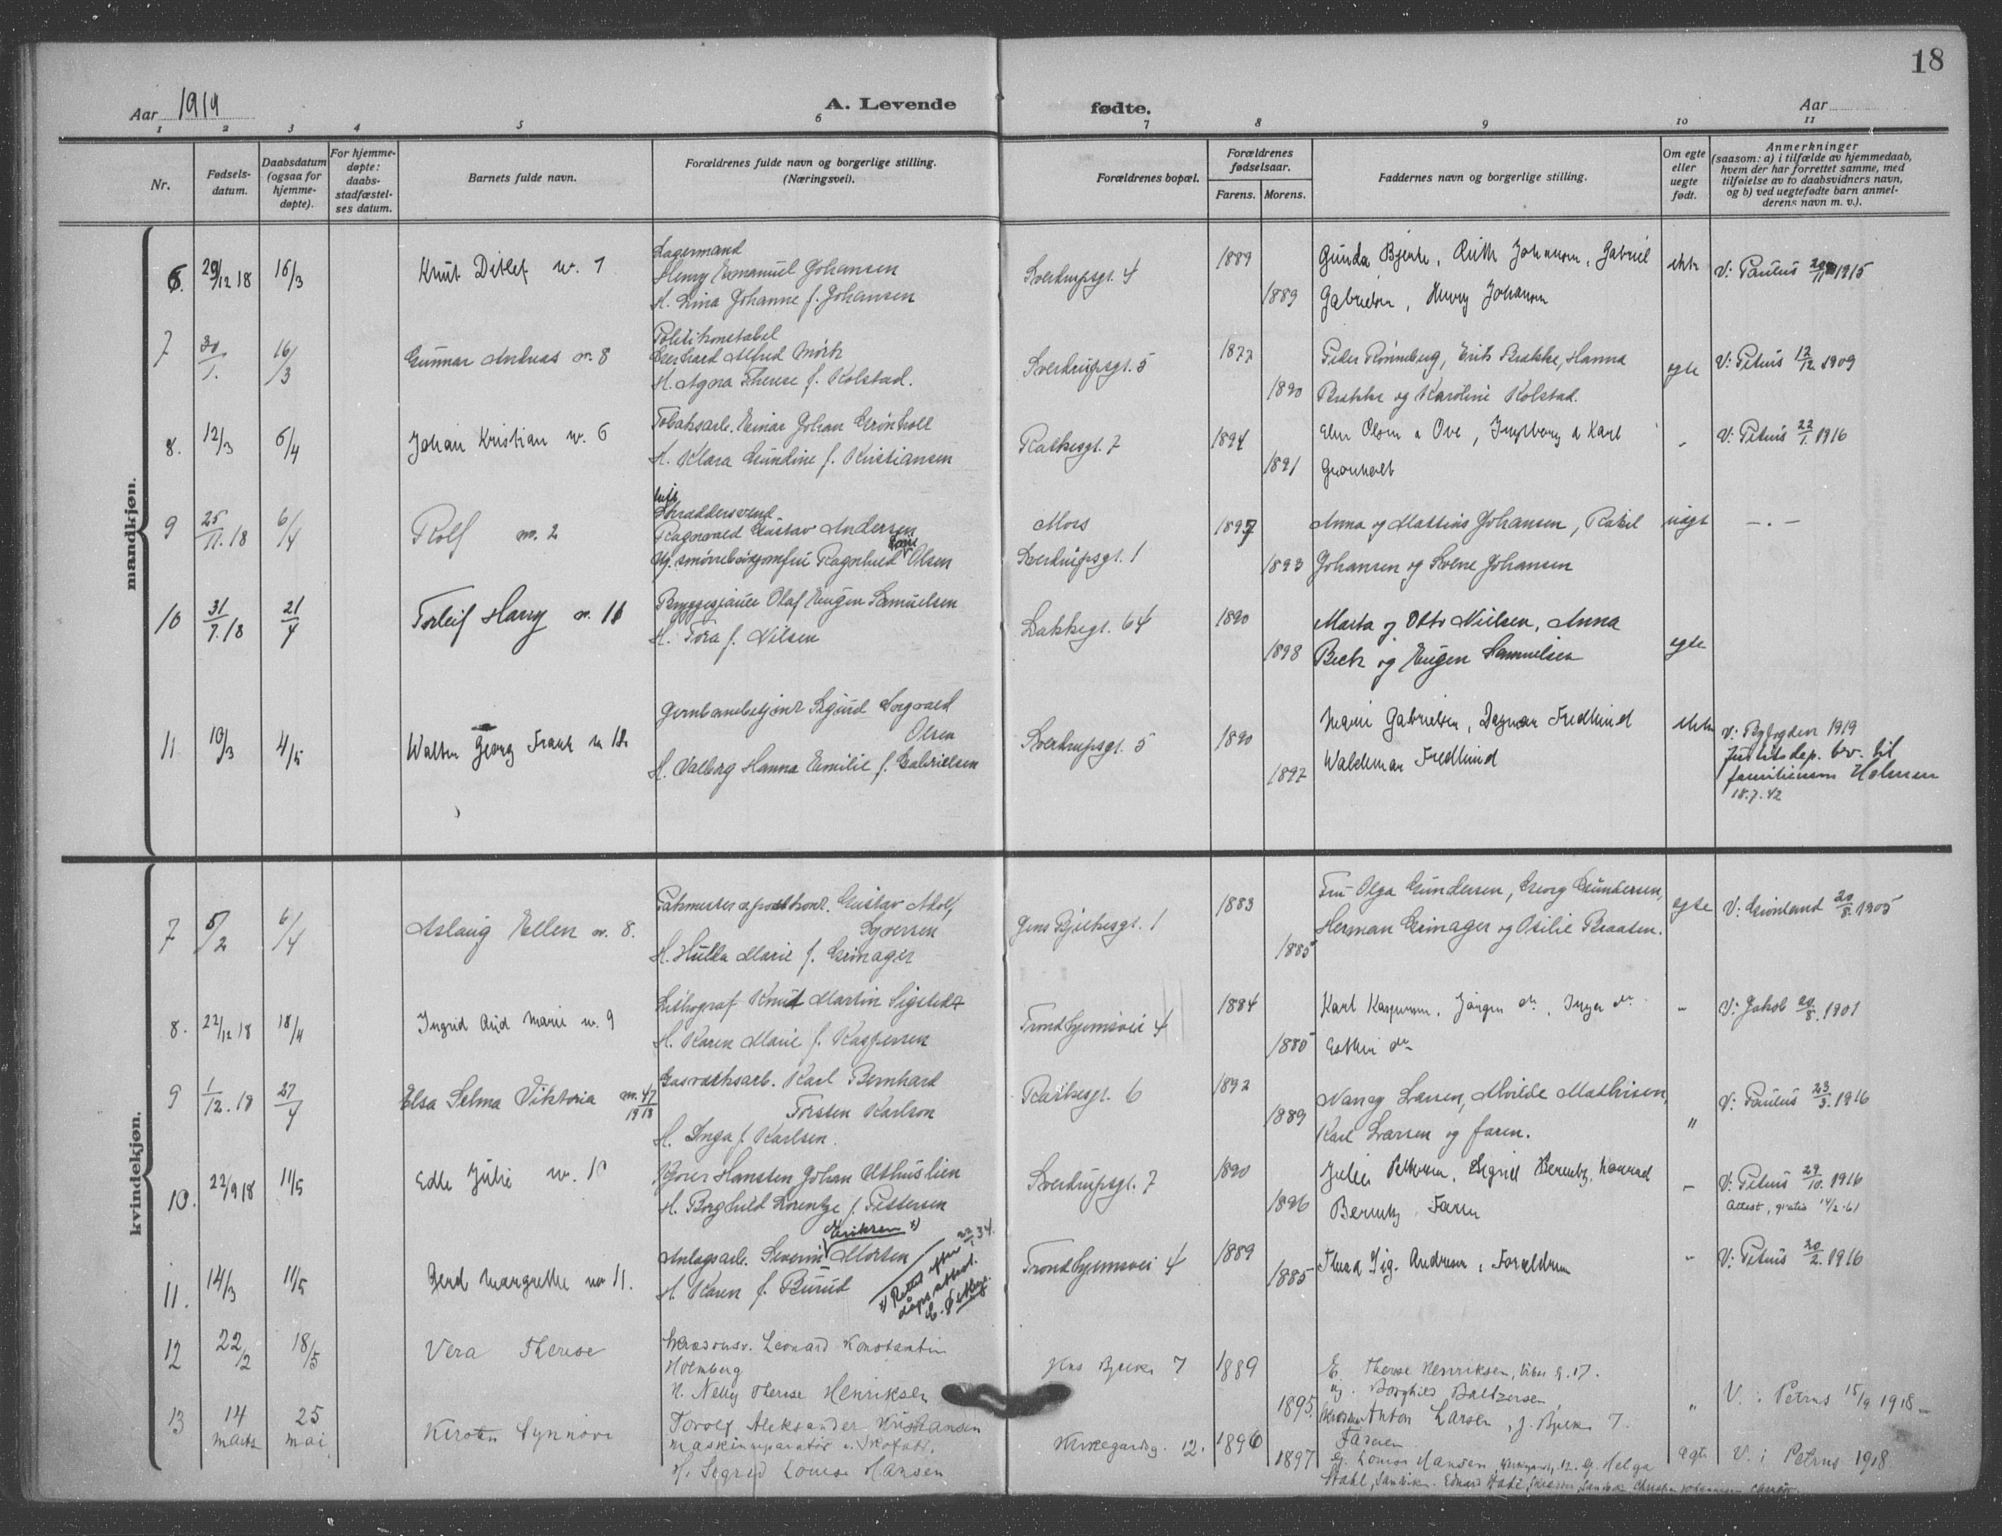 18
Aar 1919
A. Levende fødte.
Aar
1 2 3 4 5 6 7 8 9 10 11
Nr.
Fødsels-
datum.
Daabsdatum
(ogsaa for
hjemme-
døpte).
For hjemme-
døpte:
daabs-
stadfæstel-
ses datum.
Barnets fulde navn.
Forældrenes fulde navn og borgerlige stilling.
(Næringsvei).
Forældrenes bopæl.
Forældrenes
fødselsaar.
Farens. Morens.
Faddernes navn og borgerlige stilling.
Om egte
eller
uegte
født.
Anmerkninger
(saasom: a) i tilfælde av hjemmedaab,
hvem der har forrettet samme, med
tilføielse av to daabsvidners navn,
og b) ved uegtefødte barn anmel-
derens navn m. v.).
mandkjøn.
6. 29/12 18 16/3 Knut Ditlef nr. 7
Lagermand
Henry Emanuel Johansen
H. Lina Johanne f. Johansen
Sverdrupsgt. 4
1889
1889
Gunda Bjerke, Ruth Johansen, Gabriel
Gabrielsen, Henry Johansen
V: Paulus 1915
7 30/1. 16/3 Gunnar Andreas nr. 8
Politikonstabel
Gerhard Alfred Mørk
H. Agna Therese f. Kolstad.
Sverdrupsgt. 5
1877
1890
Peder Rønneberg, Erik Bakke, Hanna
Bakke og Karoline Kolstad.
egte
V: Petrus 12/12. 1909
8. 12/3 6/4 Johan Kristian nr. 6
Tobaksarb. Einar Johan Grønholt
H. Klara Gundine f. Kristiansen
Falkesgt. 7
1894
1891
Elen Olsen & Ove, Ingeborg & Karl
Grønholt
"
V: Petrus 22/1. 1916
9 25/11. 18 6/4 Rolf nr. 2
Skræddersvend
Ragnvald Gustav Andersen
Ug. smørrebrødsjomfru Ragnhild Olsen
Moss
Sverdrupsgt. 1
1897
1893
Anna og Mathias Johansen, Rakel
Johansen og Svene Johansen
uegt
— . —
10 31/7. 18 21/4 Torleif Harry nr. 11
Bryggesjauer Olaf Eugen Samuelsen
H. Tora f. Nilsen
Lakkegt. 64
1890
1898
Marta og Otto Nielsen, Anna
Beck og Eugen Samuelsen
egte
11. 10/3 4/5 Walter Georg Frank nr 12
Jernbanebetjent Sigurd Torgvald
Olsen
H. Valborg Hanna Emilie f. Gabrielsen
Sverdrupsgt. 5
1890
1892
Marie Gabrielsen, Dagmar Fredlund
Waldemar Fredlund
V: Byfogden 1919
Justitsdep. bev. til
familienavn Holmen
18.7.42
kvindekjøn.
7 5/2 6/4 Aslaug Ellen nr. 8.
Gustav Adolf
Syversen
H. Hulda Marie f. Grinager
Jens Bjelkesgt. 1
1883
1885
Fru Olga Gundersen, Georg Gundersen,
Herman Grinager og Otilie Braaten.
egte
V: Grønland 20/8. 1905
8. 22/12 18 18/4 Ingrid Arid Marie nr. 9
Lithograf Knut Martin Sigstedt
H. Karen Marie f. Kaspersen
Trondhjemsvei 4
1884
1885
Karl Kaspersen, Jørgen do, Inger do
Esther do
"
V: Jakob 20/8. 1901
9 1/12. 18 27/4 Elsa Selma Viktoria nr. 47/1918
Gasverksarb. Karl Bernhard
Torsten Karlson
H. Inga f. Karlsen.
Falkesgt. 6
1892
1889
Nancy Larsen, Alvilde Mathisen,
Karl Larsen og faren.
"
V: Paulus 23/3. 1916
10. 22/9 18 11/5 Edle Julie nr. 10
Kjører Hansten Johan Athuslien
H. Borghild Lorentze f. Pettersen
Sverdrupsgt. 7
1890
1896
Julie Pettersen, Sigrid Berentz, Konrad
Berentz, Faren
"
V: Petrus 29/10. 1916
Attest, gratis 14/2-61
11. 14/3 11/5 Gerd Margrethe nr 11.
Eriksen x)
Anlægsarb. Severin Morten
H. Karen f. Burud
x) Rettet efter 22/1 34.
dåpsattest.
Trondhjemsvei 4
1889
1885
Sig. Andersen, Forældrene
"
V: Petrus 20/2. 1916
12 22/2 18/5 Vera Therese
Leonard Konstantin
Holmberg
H. Nelly Therese Henriksen
Jens Bjelkes 7
1889
1895.
E. Therese Henriksen, g. 17.
Ug. Borghild Baltzersen
Anton Larsen, J. Bjelkes 7.
Faderen
"
V: Petrus 15/9 1918
13 14 marts 25 mai Kirsten Synnøve
Torolf Aleksander Kristiansen
Maskinreparatør v. Skofabr.
H. Sigrid Louise Hansen
Kirkegardsg. 12.
1896
1897
Louise Hansen, Kirkegardsg. 12. Helga
Stahl, Sandvika. Edvard Stahl,
egte
V: Petrus 1918.